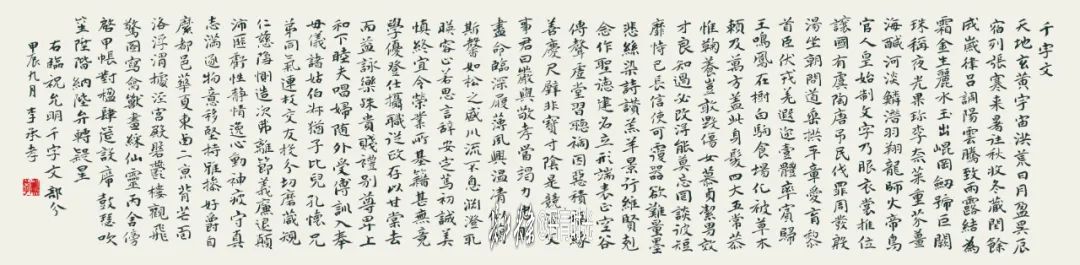 千字文
天地玄黄宇宙洪荒日月盈昃辰
宿列張寒来暑往秋收冬藏閏餘
成歲律吕調陽雲騰致雨露結為
霜金生麗水玉出崐岡劍號巨闕
珠稱夜光果珎李柰菜重芥薑
海鹹河淡鱗潛羽翔龍師火帝鳥
官人皇始制文字乃服衣裳推位
讓國有虞陶唐弔民伐罪周發殷
湯坐朝問道垂拱平章愛育黎
首臣伏戎羌遐迩壹體率賓歸
王鳴鳳在樹白駒食場化被草木
賴及萬方蓋此身髮四大五常恭
惟鞠養豈敢毀傷女慕貞潔男效
才良知過必改得能莫忘罔談彼短
靡恃己長信使可覆器欲難量墨
悲絲染詩讚羔羊景行維賢剋
念作聖德建名立形端表正空谷
傳聲虛堂習聽禍因惡積
善慶尺璧非寶寸陰是競父
事君曰嚴與敬孝當竭力
盡命臨深履薄夙興溫清
斯馨如松之盛川流不息淵澄取
暎容止若思言辭安定篤初誠美
慎終宜令榮業所基籍甚無竟
學優登仕攝職從政存以甘棠去
而益詠樂殊貴賤禮别尊卑上
和下睦夫唱婦隨外受傅訓入奉
母儀諸姑伯叔猶子比兒孔懷兄
弟同氣連枝交友投分切磨箴規
仁慈隱惻造次弗離節義廉退顛
沛匪虧性靜情逸心動神疲守真
志滿逐物意移堅持雅操好爵自
縻都邑華夏東西二京背芒面
洛浮渭據涇宮殿磐鬱樓觀飛
驚圖寫禽獸畫綵仙靈丙舍傍
啓甲帳對楹肆筵設席鼓瑟吹
笙陞階納陛弁轉疑星
右臨祝允明千字文部分
甲辰九月李承孝